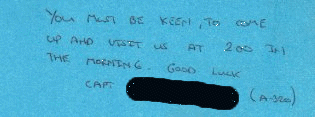 YOU MUST BE KEEN, TO COME
UP AND VISIT US AT 200 IN
THE MORNING. GOOD LUCK
CAPT (A-320)